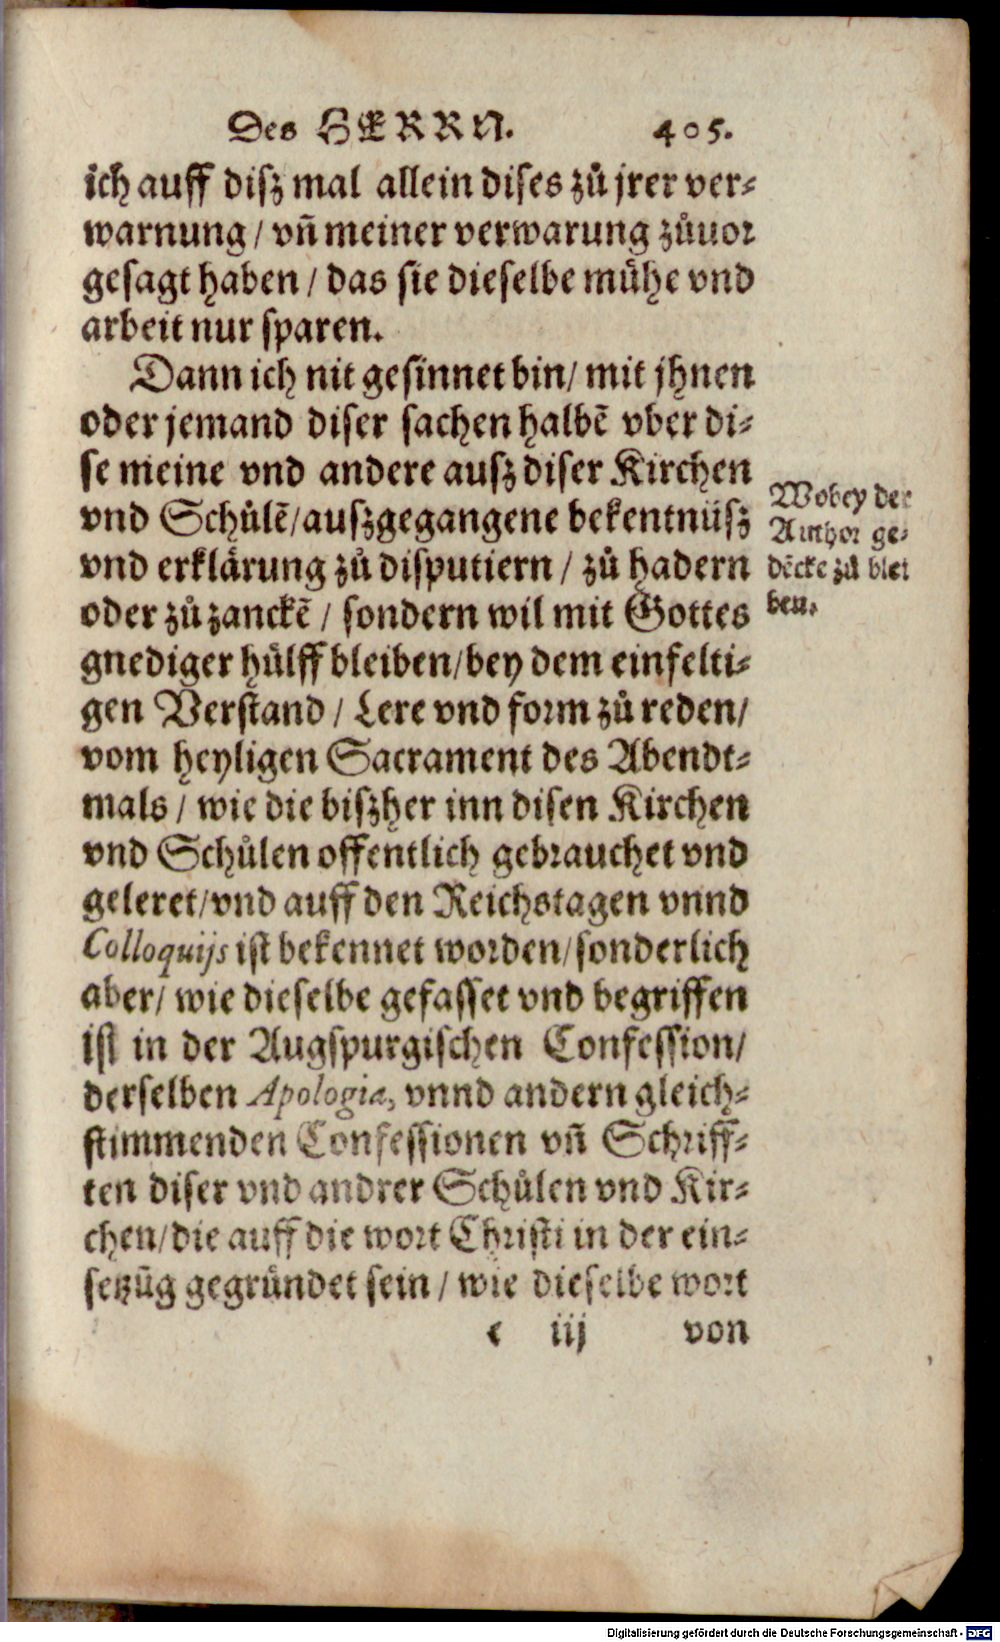 Des HERRN. 405.
ich auff disz mal allein dises zů jrer ver-
warnung / vñ meiner verwarung zůuor
gesagt haben / das sie dieselbe mühe vnd
arbeit nur sparen.
Dann ich nit gesinnet bin / mit jhnen
oder jemand diser sachen halbẽ vber di-
se meine vnd andere ausz diser Kirchen
vnd Schůlẽ / auszgegangene bekentnüsz
vnd erklärung zů disputiern / zů hadern
oder zů zanckẽ / sondern wil mit Gottes
gnediger hülff bleiben / bey dem einfelti-
gen Verstand / Lere vnd form zů reden /
vom heyligen Sacrament des Abendt-
mals / wie die biszher inn disen Kirchen
vnd Schůlen offentlich gebrauchet vnd
geleret / vnd auff den Reichstagen vnnd
Colloquijs ist bekennet worden / sonderlich
aber / wie dieselbe gefasset vnd begriffen
ist in der Augspurgischen Confession /
derselben Apologia, vnnd andern gleich-
stimmenden Confessionen vñ Schriff-
ten diser vnd andrer Schůlen vnd Kir-
chen / die auff die wort Christi in der ein-
setzũg gegründet sein / wie dieselbe wort
c iij von
Wobey der
Author ge-
dẽcke zů blei
ben.
Digitalisierung gefördert durch die Deutsche Forschungsgemeinschaft - DFG